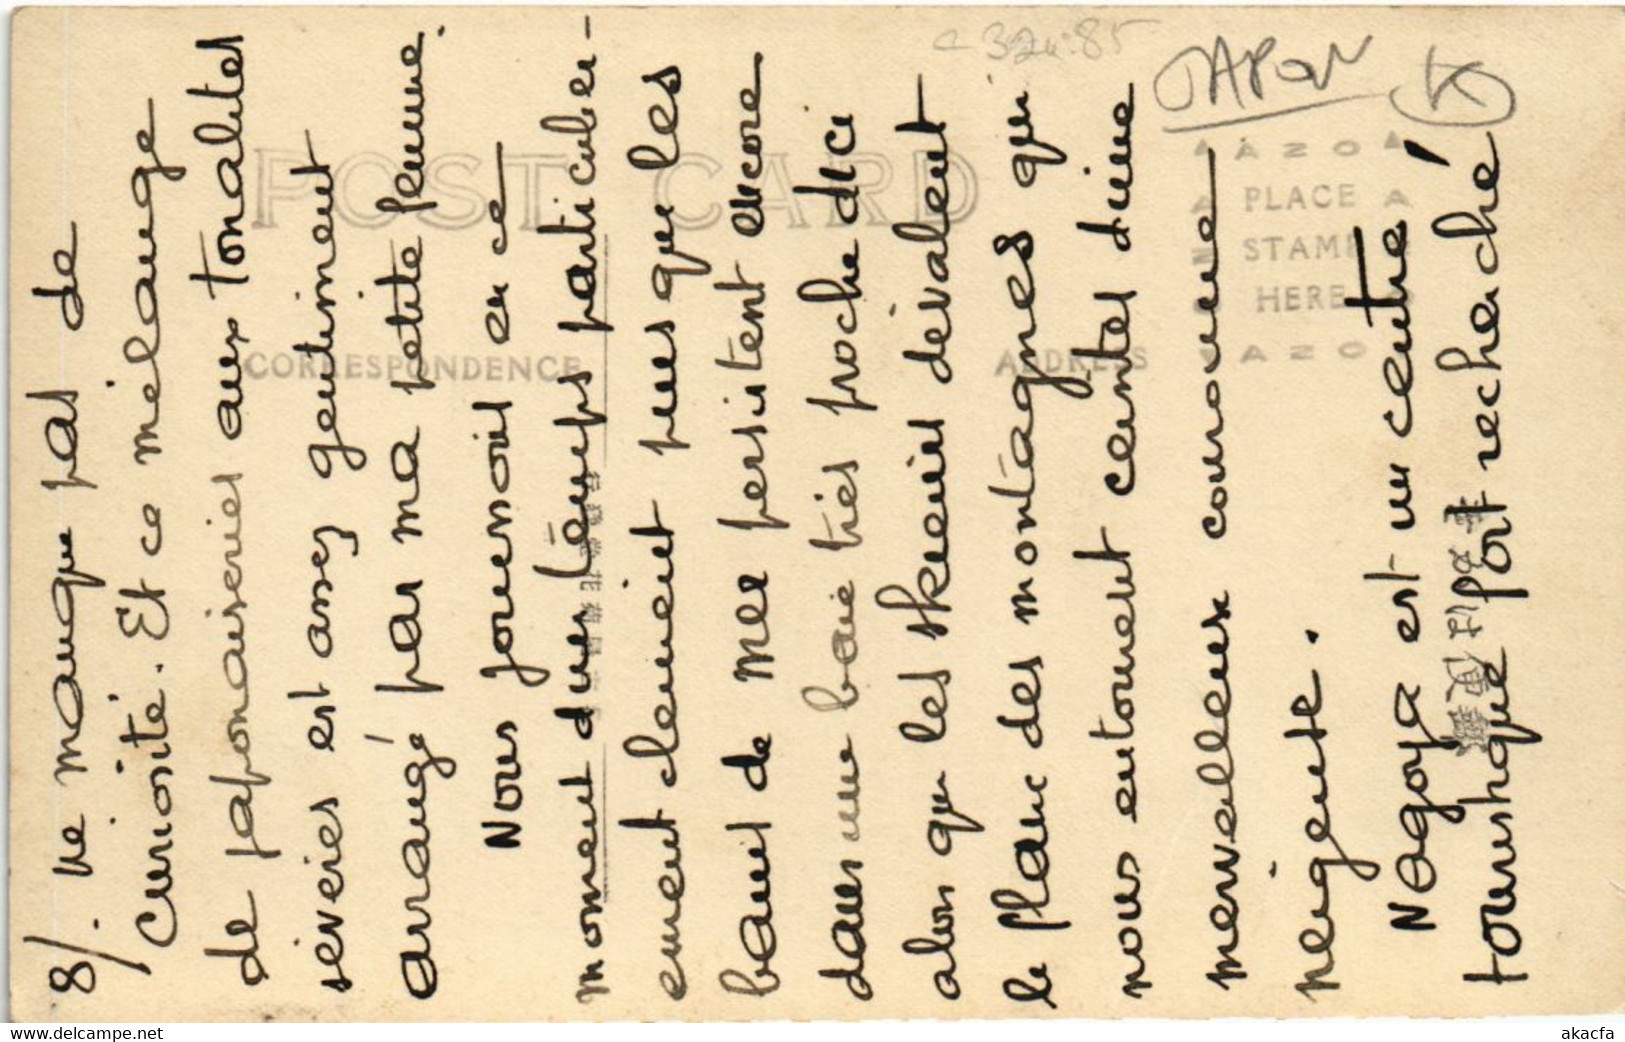 8/. ne manque pas de
curiosité. Et ce mélange
de japonaiseries aux tonalités
sévères est assez gentiment
arrangé par ma petite femme.
Nous jouissons en ce
moment d'un temps particulier-
ement clément puis que les
bains de mer persistent encore
dans une baie très proche d'ici
alors que les skieurs dévalent
le flanc des montagnes qui
nous entourent ceintes d'une
merveilleuse couronne
neigeuse.
Nagoya est un centre
touristique fort recherché
JAPON
POST CARD
CORRESPONDENCE
ADDRESS
AZO
PLACE
STAMP
HERE
AZO
akacfa
www.delcampe.net